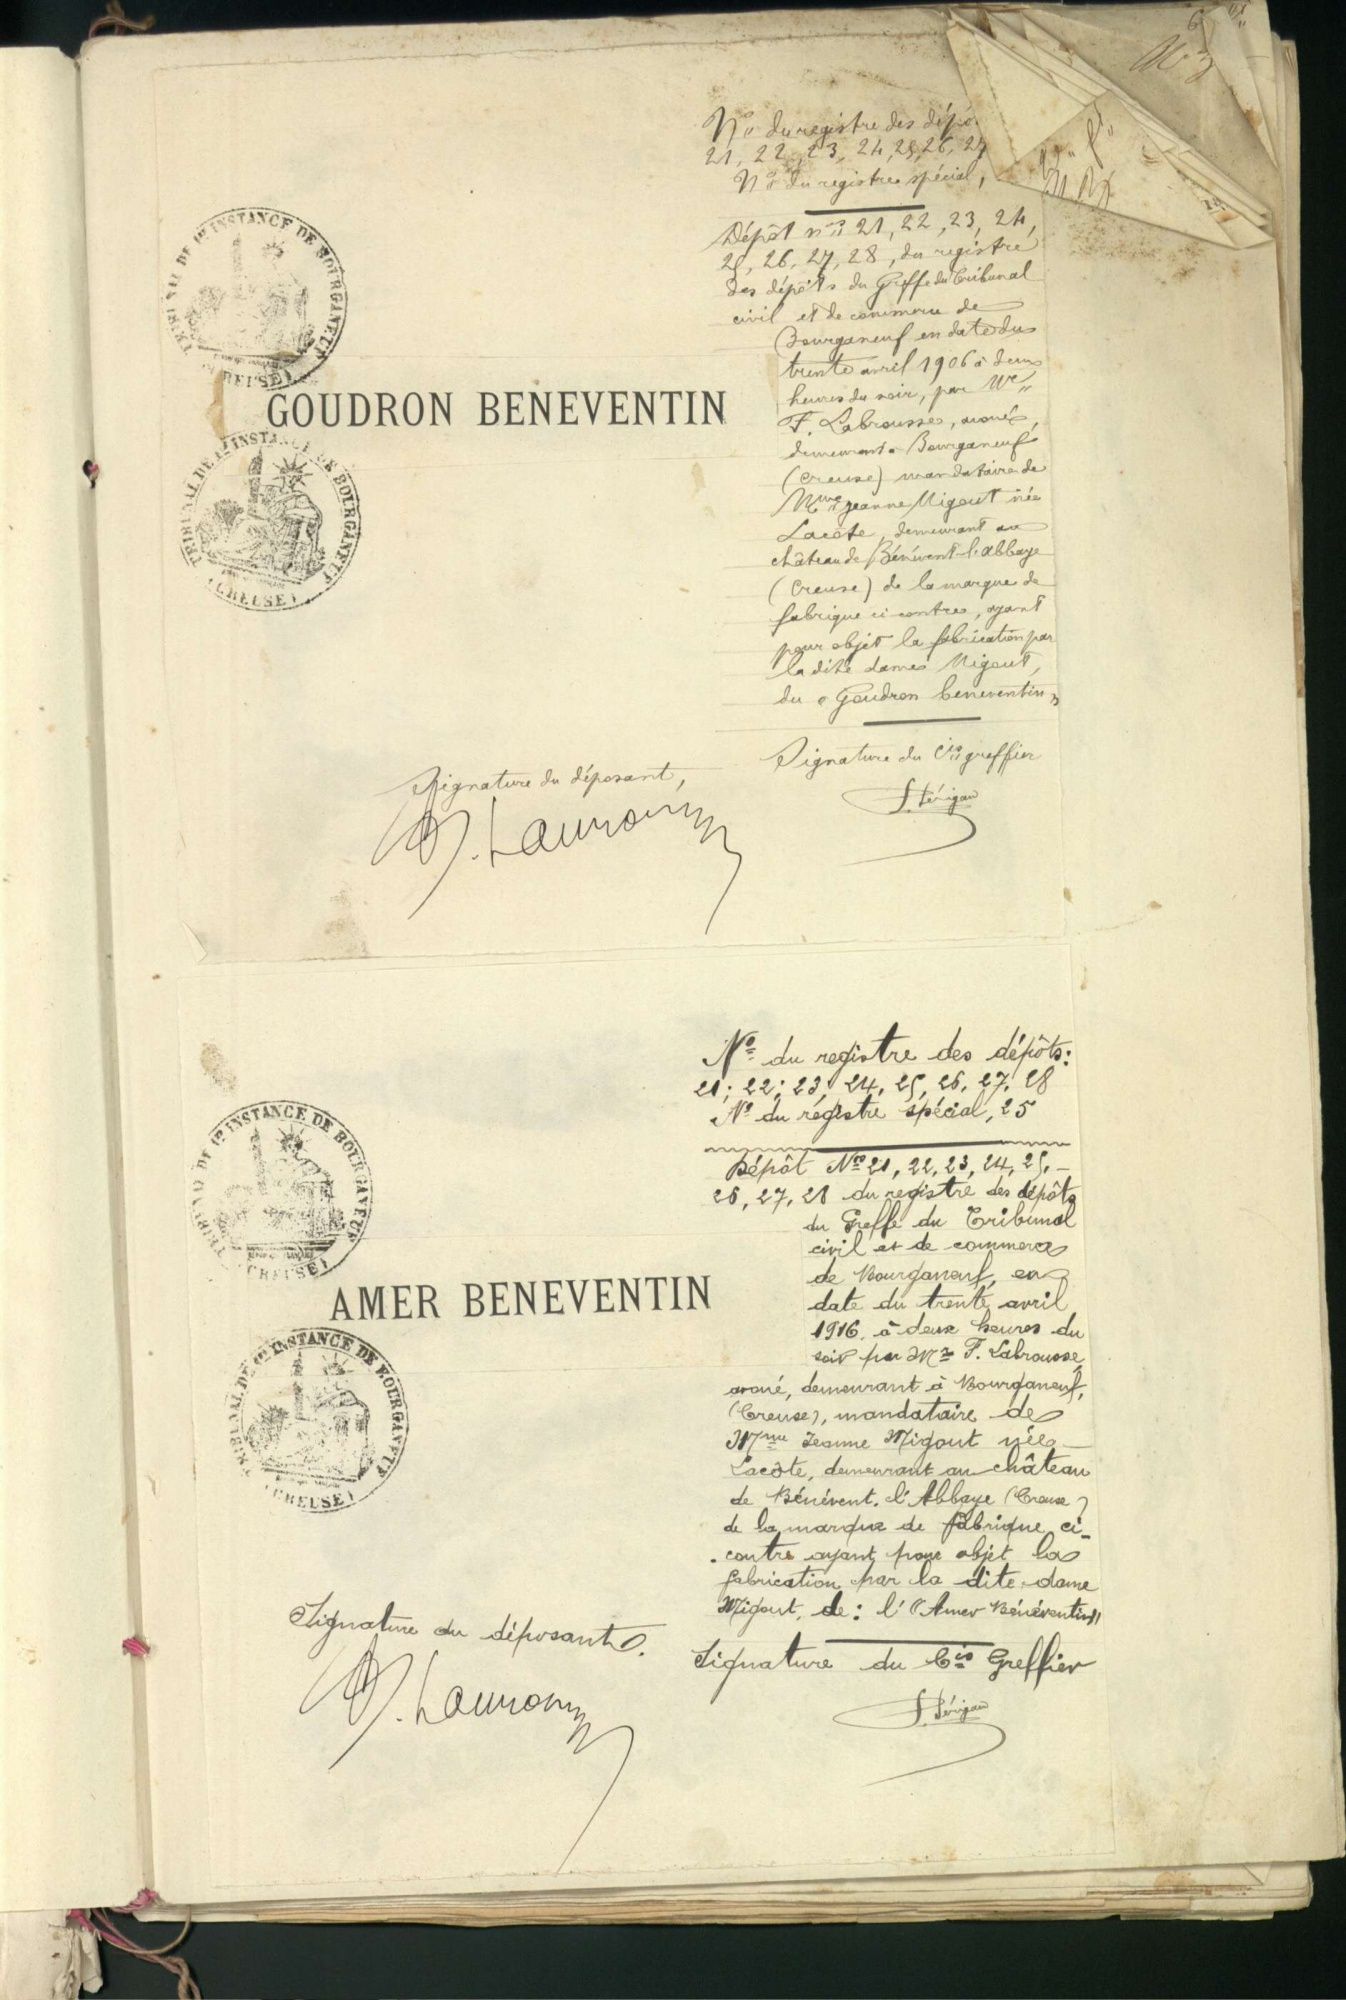 Nos du registre des dépô
21, 22, 23, 24, 25, 26, 27
No du registre spécial,
Dépôt nos 21, 22, 23, 24,
25, 26, 27, 28, du registre
des dépôts du Greffe du Tribunal
civil et de commerce de
Bourganeuf en date du
trente avril 1906 à deux
heures du soir, par Me
F. Labrousse, avoué,
demeurant à Bourganeuf
(Creuse) mandataire de
Mme Jeanne Migout née
Lacôte, demeurant au
château de Bénévent-l'abbaye
(Creuse) de la marque de
fabrique ci-contre, ayant
pour objet la fabrication par
la dite dame Migout,
du "Goudron beneventin"
TRIBUNAL DE 1re INSTANCE DE BOURGANEUF
(CREUSE)
GOUDRON BENEVENTIN
TRIBUNAL DE 1re INSTANCE DE BOURGANEUF
(CREUSE)
Signature du Cis greffier
Signature du déposant,
No du registre des dépôts:
21; 22; 23; 24, 25, 26, 27, 28
No du régistre spécial, 25
Dépôt Nos 21, 22, 23, 24, 25,
26, 27, 28 du registre des dépôts
du Greffe du Tribunal
civil et de commerce
de Bourganeuf, en
date du trente avril
1916 à deux heures du
soir par Me F. Labrousse,
avoué, demeurant à Bourganeuf,
(Creuse), mandataire de
Mme Jeanne Migout née
Lacôte, demeurant au château
de Bénévent-l'Abbaye (Creuse)
de la marque de fabrique ci-
contre ayant pour objet la
fabrication par la dite dame
Migout, de: l'"Amer Bénéventin"
TRIBUNAL DE 1re INSTANCE DE BOURGANEUF
(CREUSE)
AMER BENEVENTIN
TRIBUNAL DE 1re INSTANCE DE BOURGANEUF
(CREUSE)
Signature du déposant.
Signature du Cis Greffier